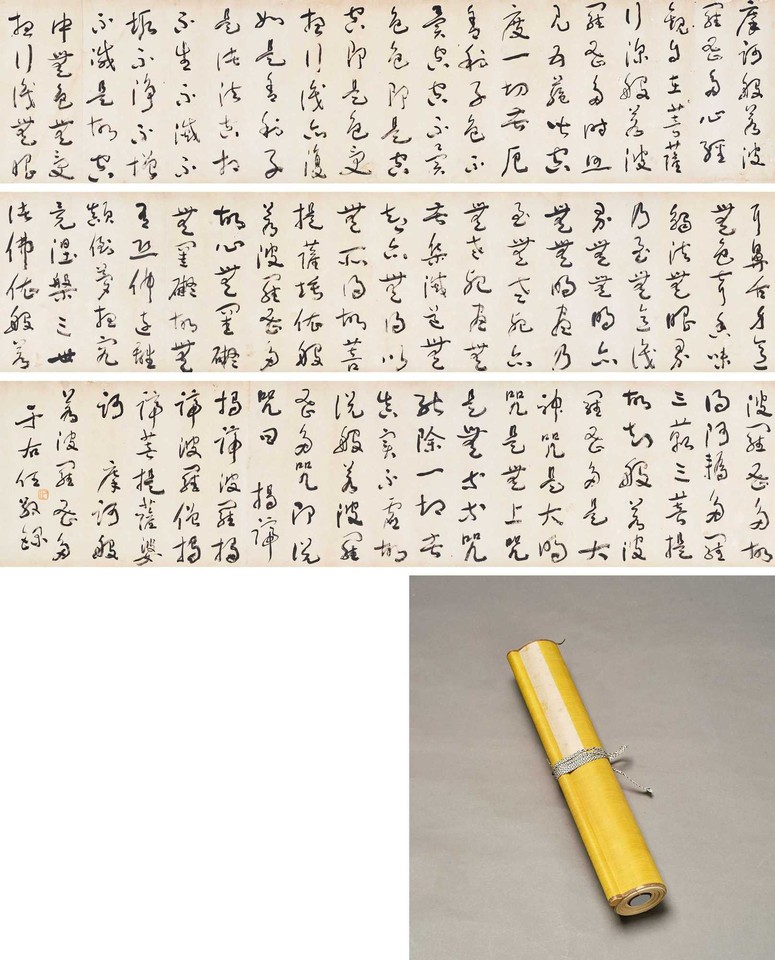 摩訶般若波
羅蜜多心經
觀自在菩薩
行深般若波
羅蜜多時照
見五蘊皆空
度一切苦厄
舍利子色不
異空空不異
色色即是空
空即是色受
想行識亦復
如是舍利子
是諸法空相
不生不滅不
垢不淨不增
不減是故空
中無色無受
想行識無眼
耳鼻舌身意
無色聲香味
觸法無眼界
乃至無意識
界無無明亦
無無明盡乃
至無老死亦
無老死盡無
苦集滅道無
智亦無得以
無所得故菩
提薩埵依般
若波羅蜜多
故心無罣礙
無罣礙故無
有恐怖遠離
顛倒夢想究
竟涅槃三世
諸佛依般若
波羅蜜多故
得阿耨多羅
三藐三菩提
故知般若波
羅蜜多是大
神咒是大明
咒是無上咒
是無等等咒
能除一切苦
真實不虛故
說般若波羅
蜜多咒即說
咒曰 揭諦
揭諦波羅揭
諦波羅僧揭
諦菩提薩婆
訶 摩訶般
若波羅蜜多
于右任敬錄